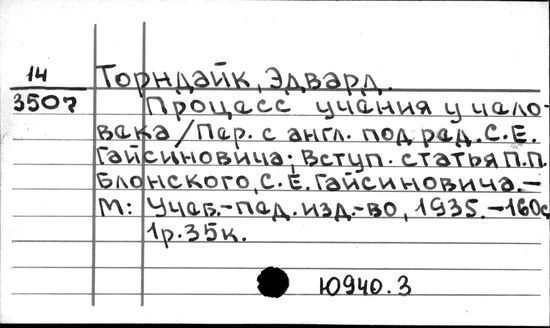 14
3507
Торндайк, Эдвард.
Процесс учения у чело-
века / Пер. с англ. под ред. С.Е.
Гайсиновича; Вступ. статья П.П.
Блонского, С.Е. Гайсиновича. –
М: Учеб.-пед. изд-во, 1935. – 160с
1р. 35к.
Ю940.3